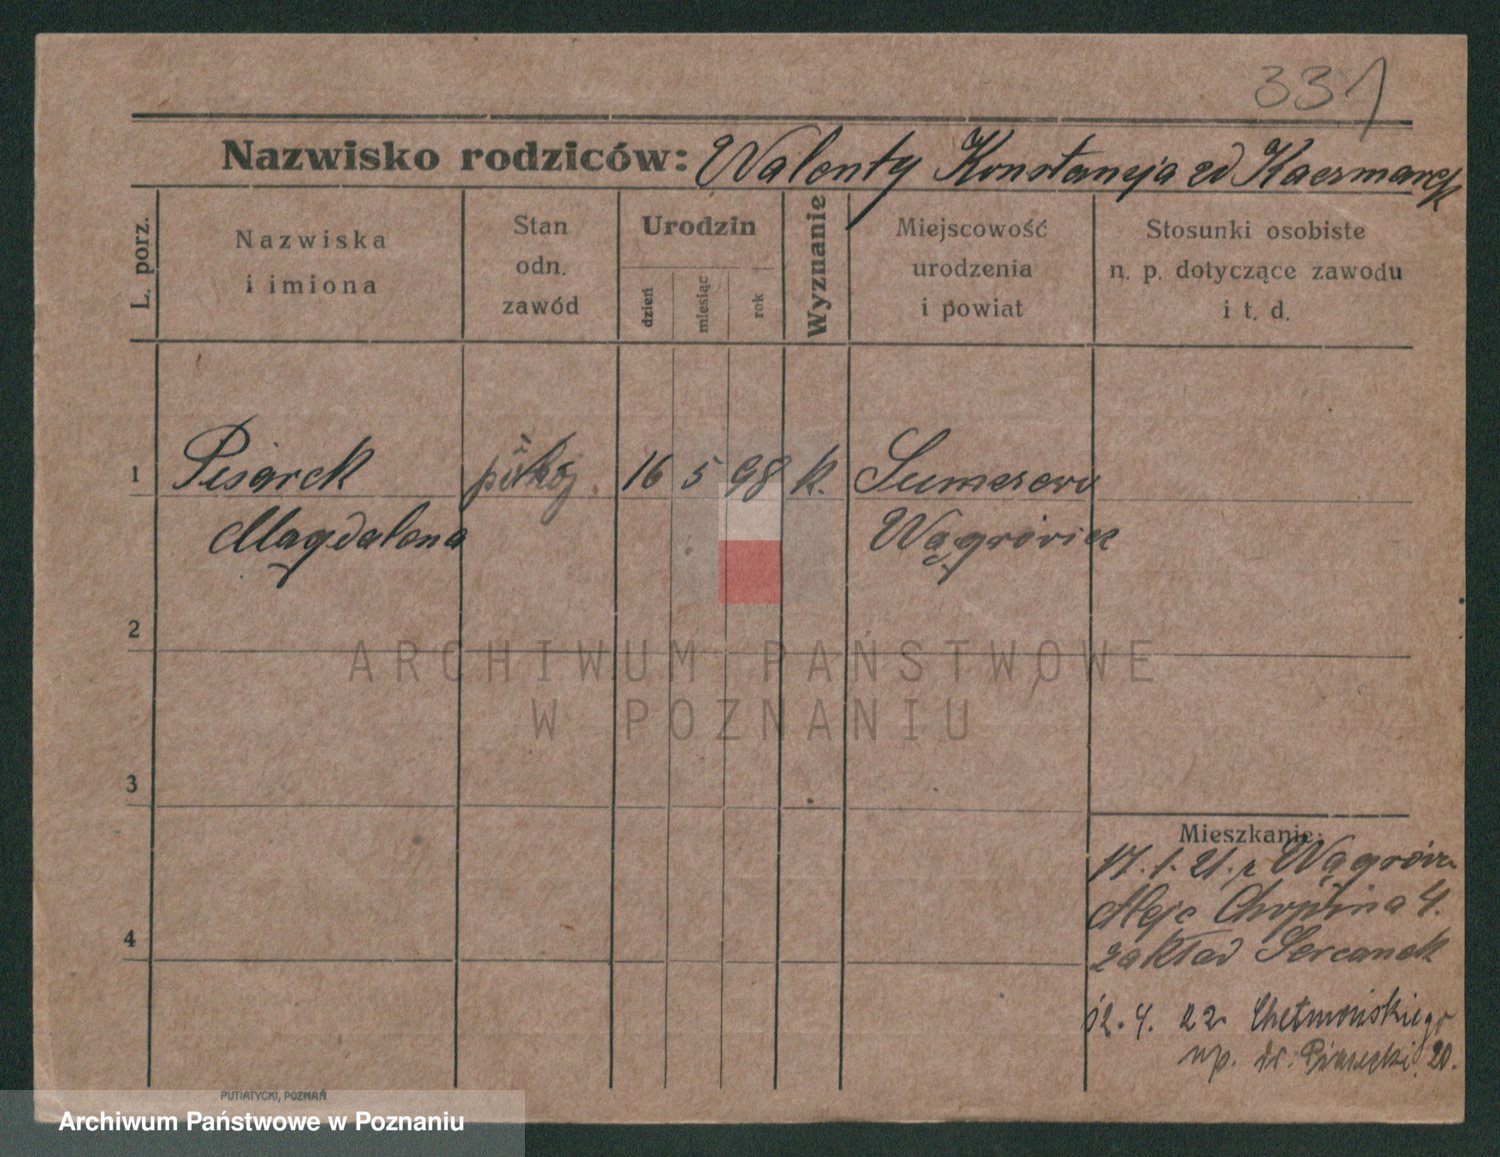 331
Nazwisko rodziców: Walenty Konstancja zd Kaczmarek
L. porz.
Nazwiska
i imiona
Stan
odn.
zawód
Urodzin
dzień
miesiąc
rok
Wyznanie
Miejscowość
urodzenia
i powiat
Stosunki osobiste
n. p. dotyczące zawodu
i t. d.
1 Pisarek 16 5 98 k.
Magdalena Wągrówiec
2
ARCHIWUM PAŃSTWOWE
W POZNANIU
3
4
Mieszkanie:
17. 1. 21. z Wągrówca
Aleje Chopina 4.
zakład Sercanek
12. 4. 22 Chełmońskiego
np. dr. 20.
PUTIATYCKI, POZNAŃ
Archiwum Państwowe w Poznaniu